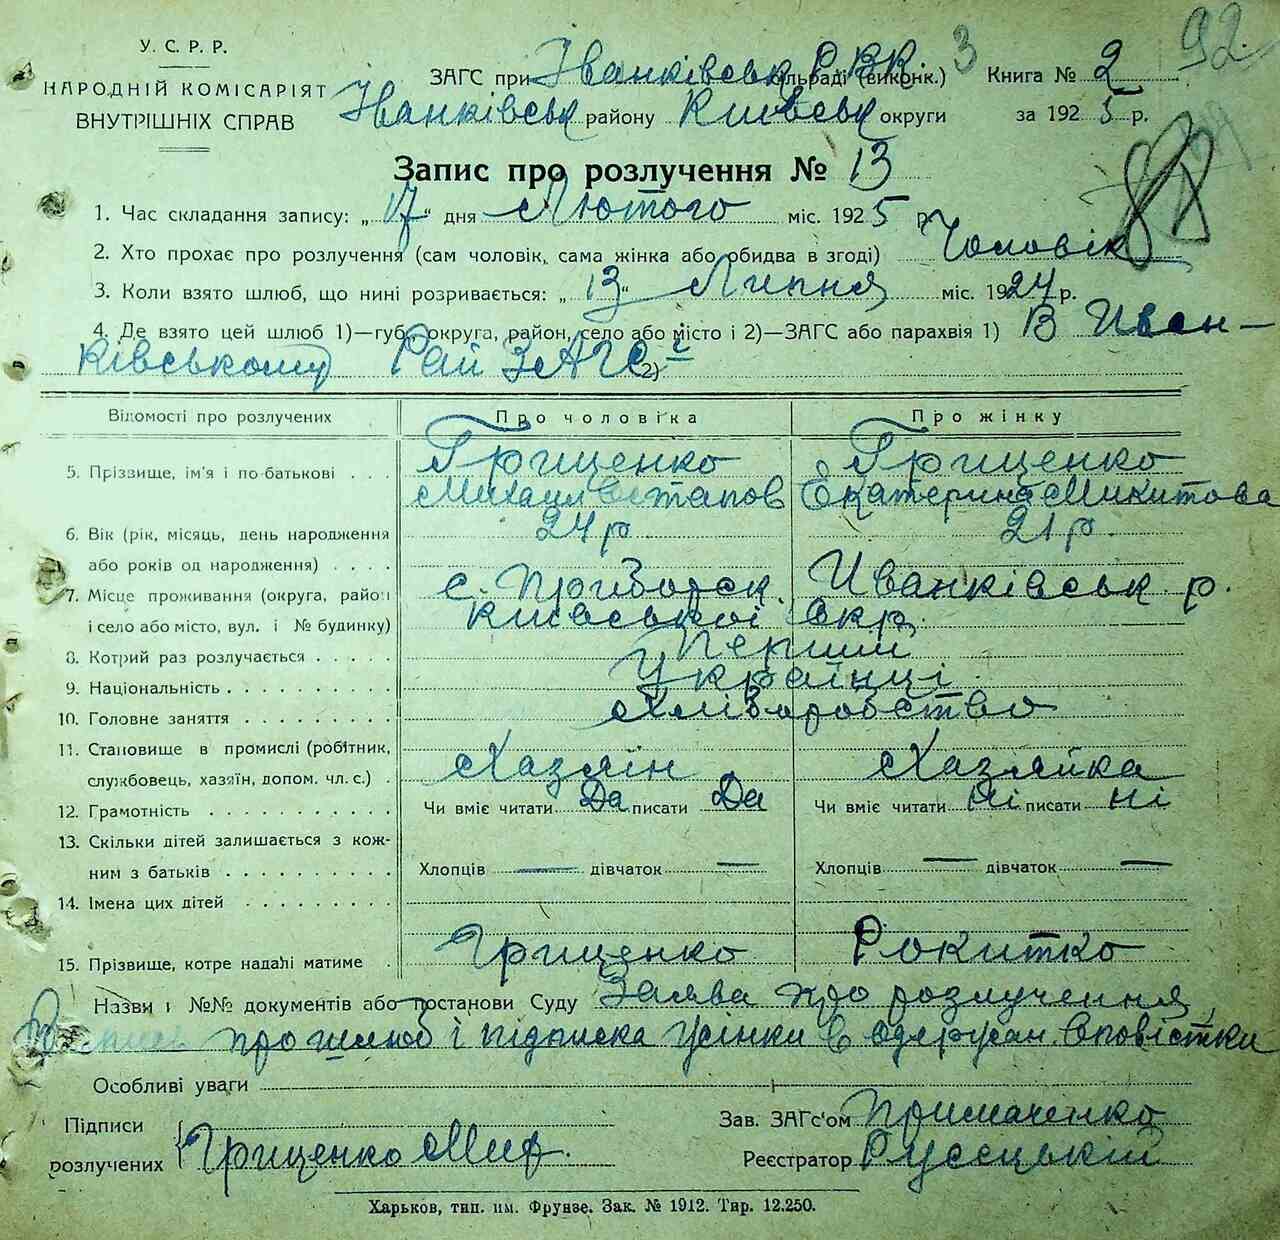 У. С. Р. Р.
НАРОДНІЙ КОМІСАРІЯТ
ВНУТРІШНІХ СПРАВ
ЗАГС при Іванківськ РВК. сільраді (виконк.) 3 Книга № 2 92.
Іванківськ району Київськ округи за 1925 р.
Запис про розлучення № 13
1. Час складання запису: „17“ дня Лютого міс. 1925 р.
2. Хто прохає про розлучення (сам чоловік, сама жінка або обидва в згоді) Чоловік
3. Коли взято шлюб, що нині розривається: „13“ Липня міс. 1924 р.
4. Де взято цей шлюб 1)—губ., округа, район, село або місто і 2)—ЗАГС або парахвія 1) В Иван-
ківському Рай ЗАГС'і 2)
Відомості про розлучених Про чоловіка Про жінку
5. Прізвище, ім'я і по-батькові . . . Гриценко Гриценко
Михаил Остапов Екатерина Микитова
6. Вік (рік, місяць, день народження 24 р 21 р.
або років од народження) . . . .
7. Місце проживання (округа, район с. Приборск. Иванківськ р.
і село або місто, вул. і № будинку) Київської Окр.
8. Котрий раз розлучається . . . . . Перший
9. Національність . . . . . . . . . . Українці
10. Головне заняття . . . . . . . . . Хліборобство
11. Становище в промислі (робітник,
службовець, хазяїн, допом. чл. с.) . Хазяїн Хазяйка
12. Грамотність . . . . . . . . . . . Чи вміє читати Да писати Да Чи вміє читати Ні писати Ні
13. Скільки дітей залишається з кож-
ним з батьків . . . . . . . . . . Хлопців — дівчаток — Хлопців — дівчаток —
14. Імена цих дітей . . . . . . . . .
15. Прізвище, котре надалі матиме . Гриценко Рокитко
Назви і №№ документів або постанови Суду Заява про розлучення,
про шлюб і підписка жінки в одержан. оповістки
Особливі уваги
Підписи Зав. ЗАГс'ом Примаченко
розлучених Гриценко Мих. Реєстратор Русецький
Харьков, тип. им. Фрунзе. Зак. № 1912. Тир. 12.250.